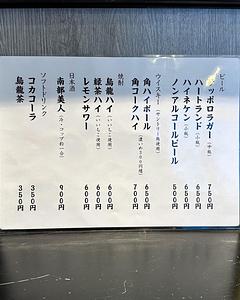 ビール
サッポロラガー（中瓶） 750円
ハートランド（小瓶） 650円
ハイネケン（小瓶） 650円
ノンアルコールビール 500円
ウイスキー（サントリー角使用）
角ハイボール 650円
角コークハイ 700円
焼酎
烏龍ハイ（いいちこ使用） 600円
緑茶ハイ（いいちこ使用） 600円
レモンサワー 600円
日本酒
南部美人 900円
ソフトドリンク
コカコーラ 350円
烏龍茶 350円